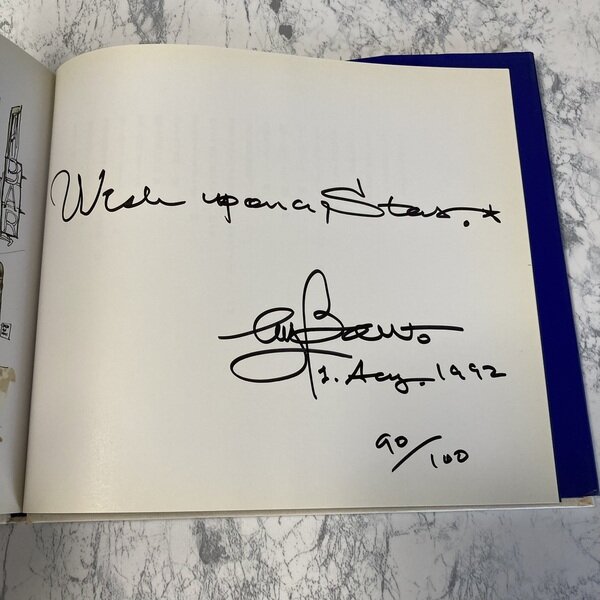 Wish upon a Star.
1. Aug. 1992
90/100